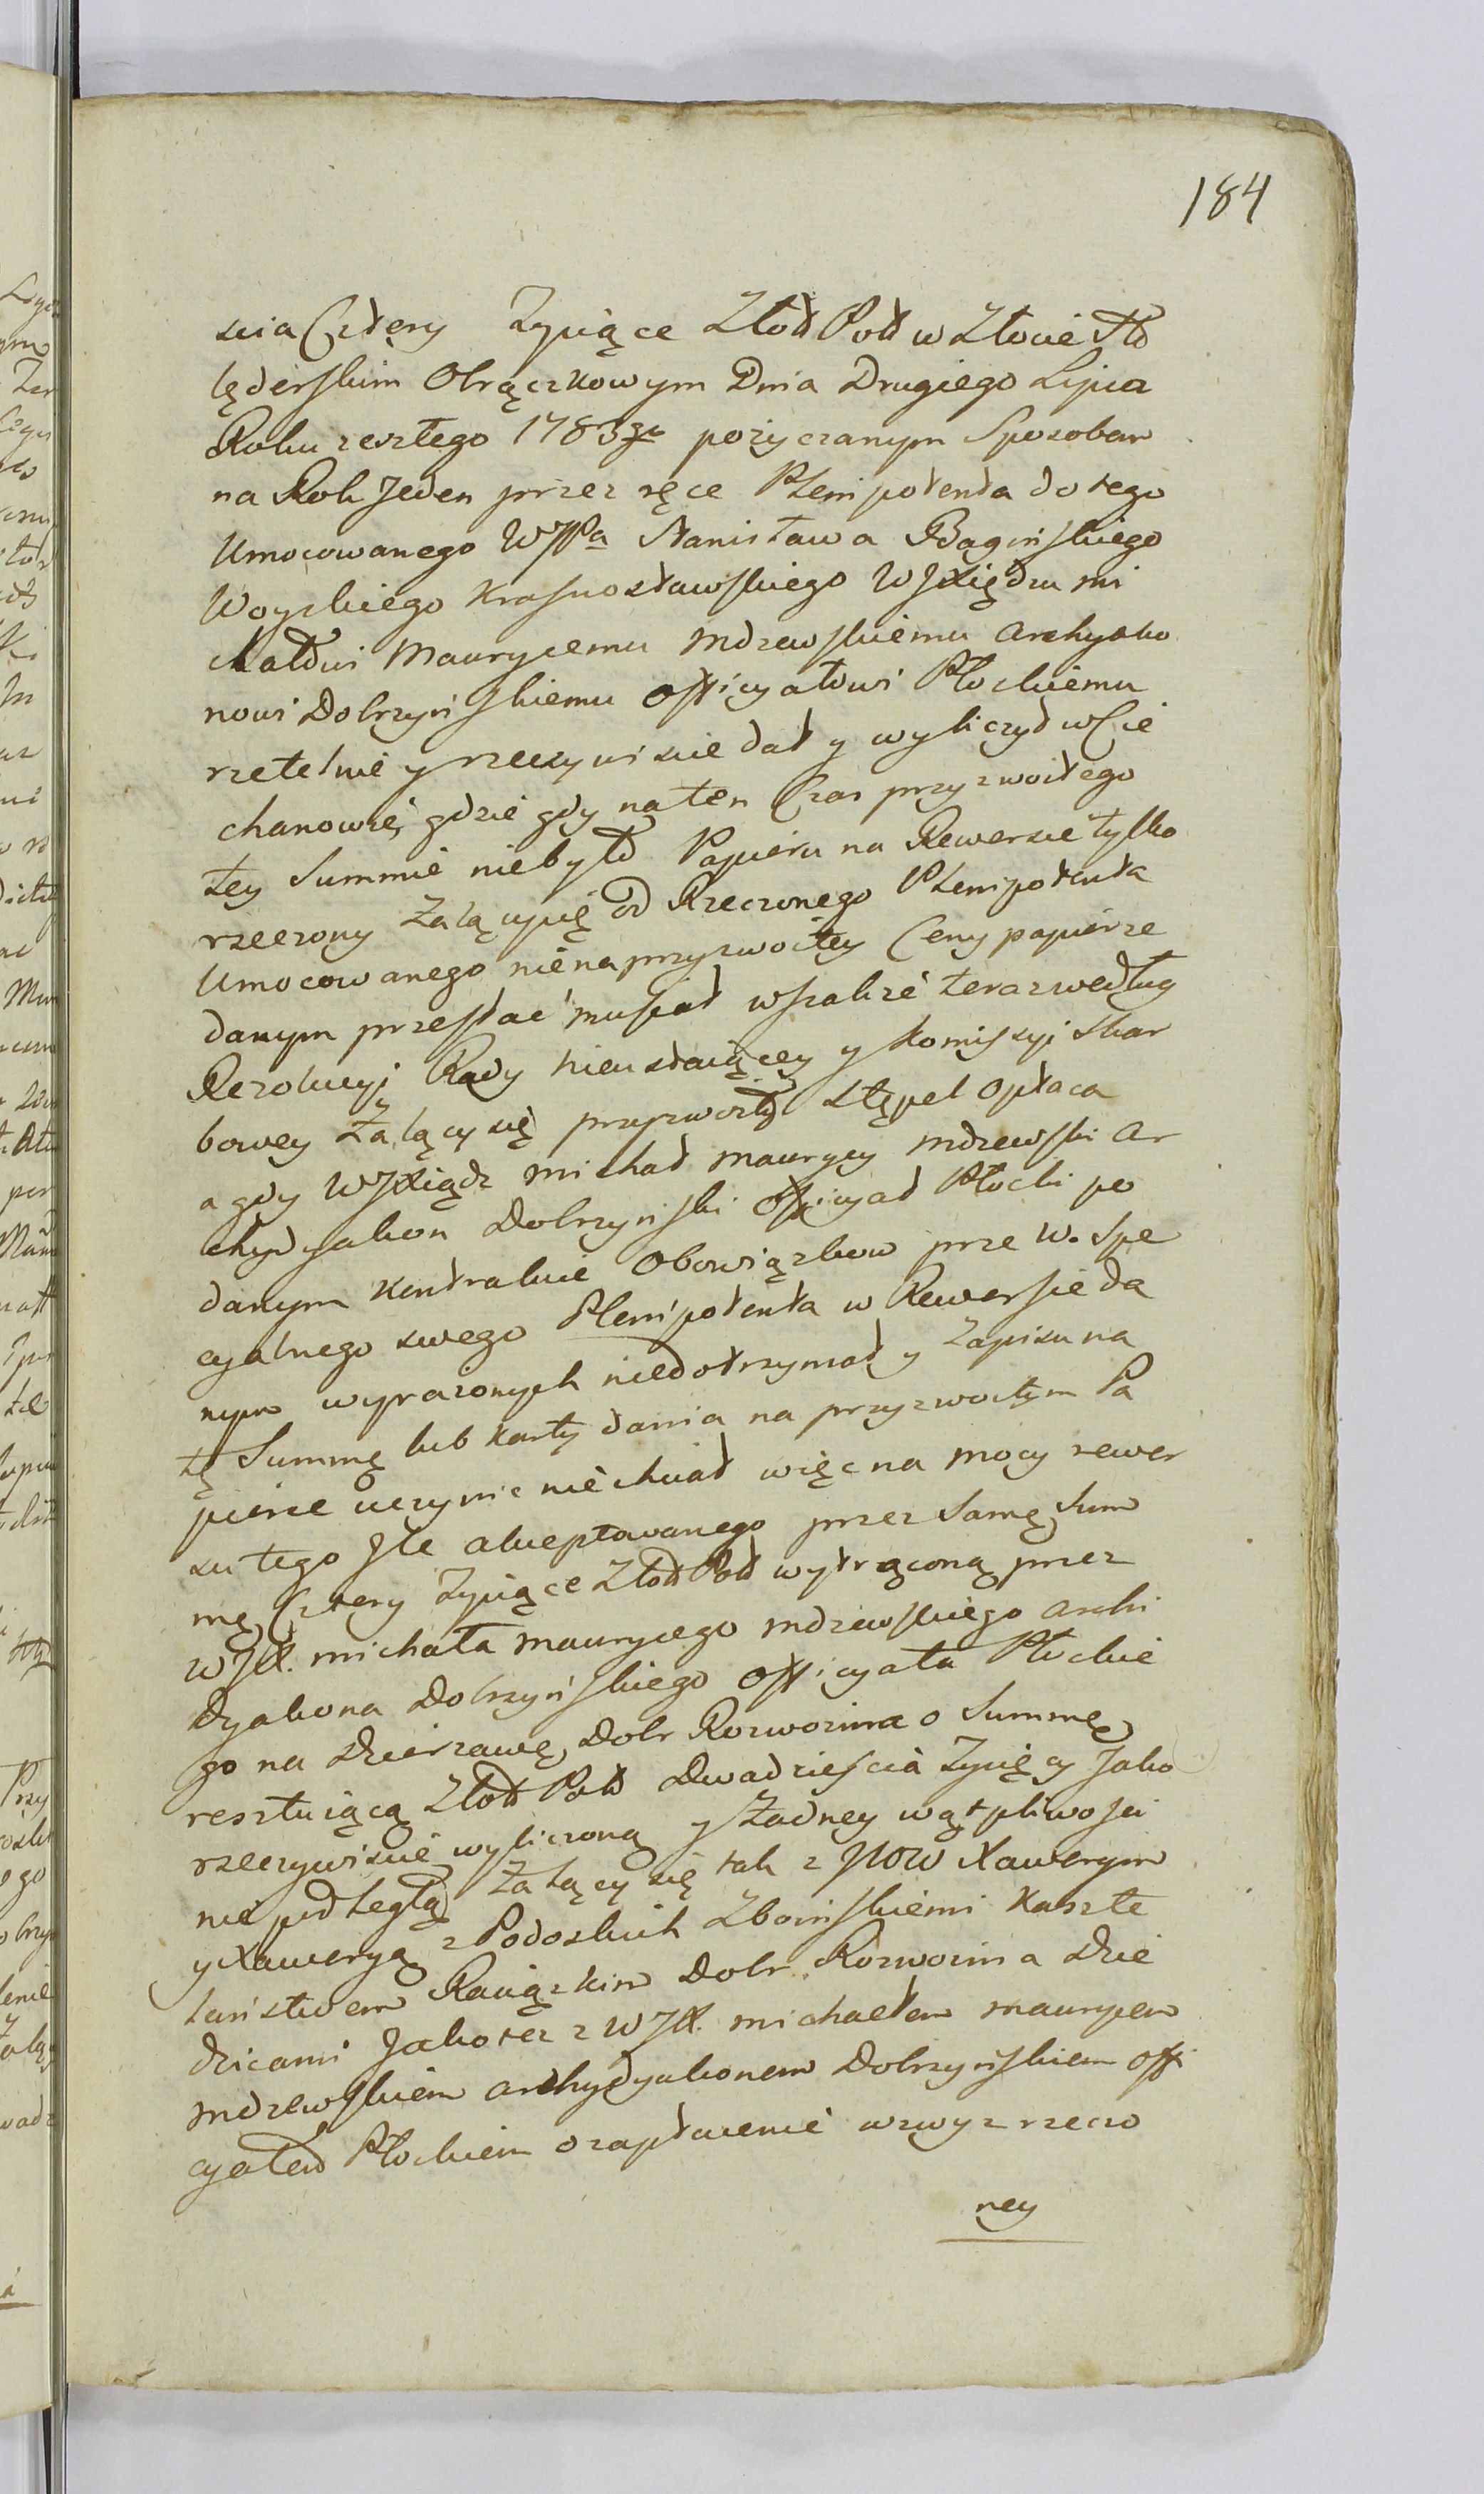 184
scia Cztery Tysiące Złoł Pol w Złocie Ho
lęderskim Obrączkowym Dnia Drugiego Lipca
Roku zeszłego 1783go pożyczanym Sposobem
na Rok Jeden przez ręce Plenipotenta do tego
Umocowanego WJPa Stanisława Bagińskiego
Woyskiego Krasnostawskiego WJXiędzu Mi
chałowi Maurycemu Mdzewskiemu Archyako
nowi Dobrzyńskiemu Officyałowi Płockiemu
rzetelnie y rzeczywiscie dał y wyliczył w Cie
chanowie, gdzie gdy na ten Czas przyzwoitego
tey Summie niebyło Papieru na Rewersie tylko
rzeczony Załącyię od Rzeczonego Plenipotenta
Umocowanego nie na przyzwoitey Ceny papierze
danym przestać musiał wszakże teraz według
Rezolucyi Rady Nieustaiącey y Komissyi Skar
bowey Załący się przyzwoity Stępel opłaca
a gdy WJXiądz Michał Maurycy Mdzewski Ar
chydyakon Dobrzyński Officyał Płocki po
danym Kontrakcie Obowiązkow prze W. Spe
cyalnego swego Plenipotenta w Rewersie da
nym wyrażonych niedotrzymał y Zapisu na
tę Summę lub karty dania na przyzwoitym Pa
pierze uczynic niechciał więc na mocy rewer
su tego Jle akceptowanego przez Samę Sum
mę Cztery Tysiące Złoł Pol wytrąconą przez
WJX. Michała Maurycego Mdzewskiego Archi
dyakona Dobrzyńskiego Officyała Płockie
go na Dzierzawę Dobr Rozwozina o Summę
resztuiącą Złoł Pol Dwadzieścia Tysięcy Jako
rzeczywiscie wyliczoną y Żadney wątpliwosci
nie podległą Załący się tak z JWW Xawerym
y Xaweryą z Podoskich Zboinskiemi Kaszte
laństwem Raciązkim Dobr Rozwozina Dzie
dzicami Jako też z WJX. Michałem Maurycem
Mdzewskiem Archydyakonem Dobrzyńskiem Offi
cyałem Płockiem o zapłacenie wzwyz rzeczo
ney